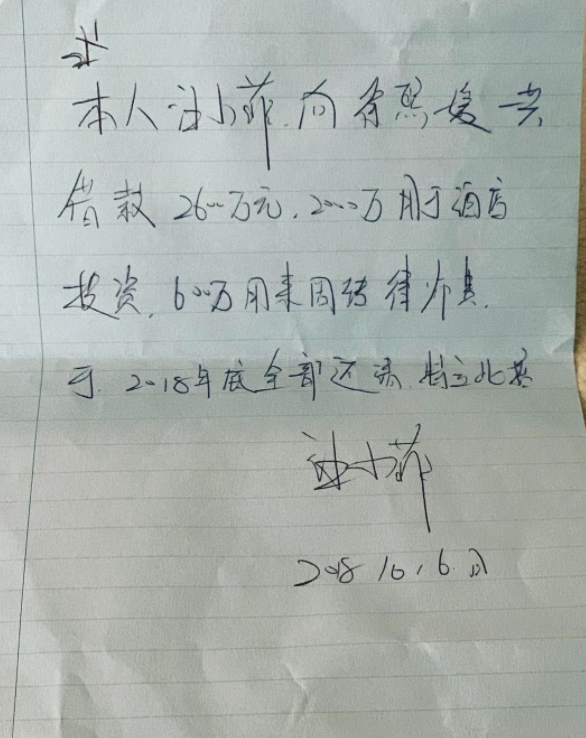 本人汪小菲向徐熙媛共
借款2600万元，2000万用于酒店
投资，600万用来周转律师费，
于2018年底全部还清，特立此据
汪小菲
2018 10, 6日